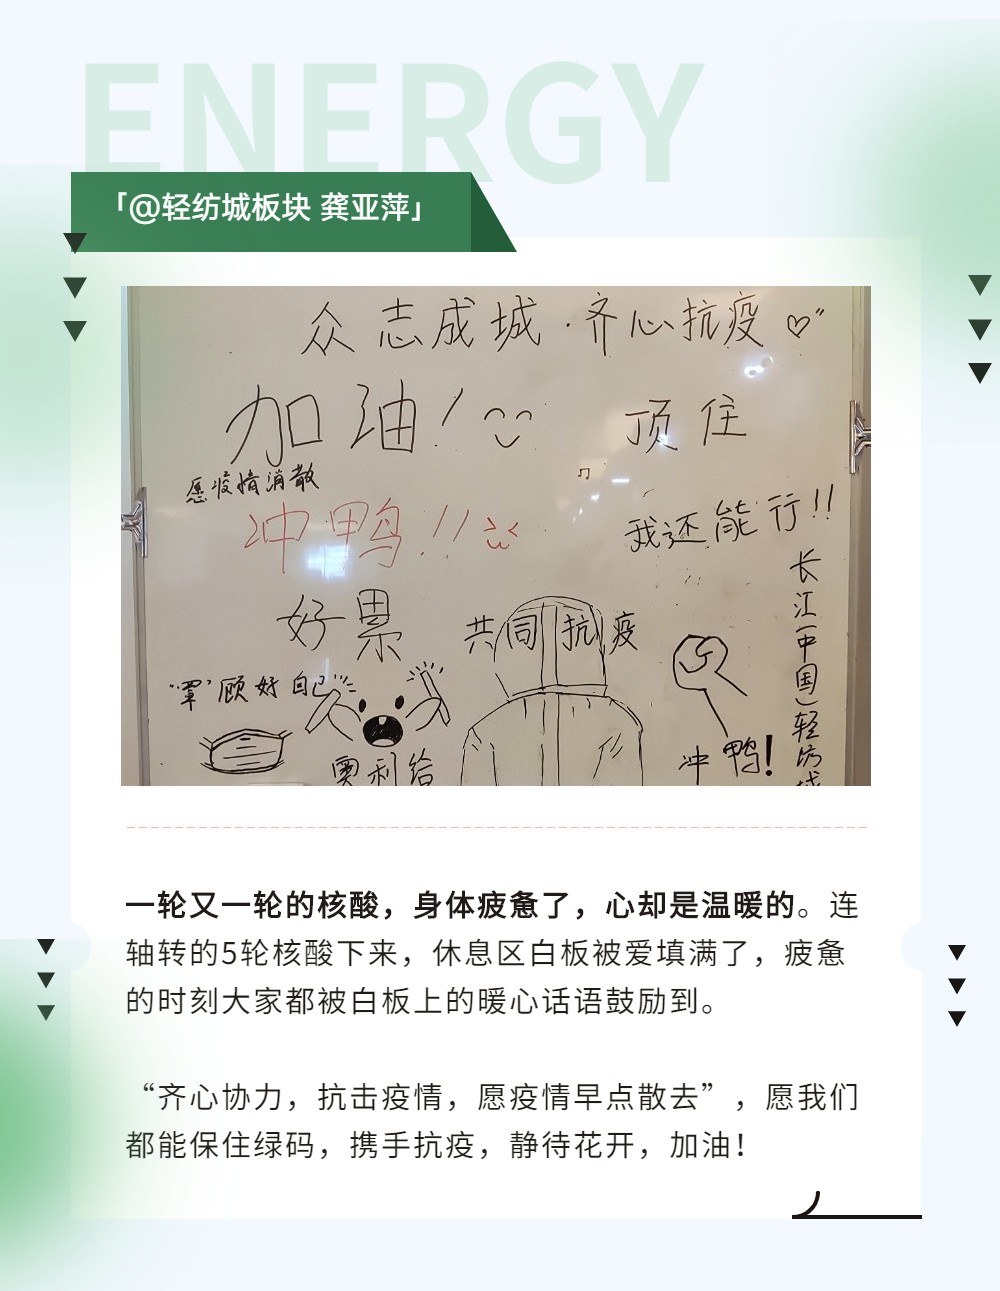 ENERGY
「@轻纺城板块 龚亚萍」
众志成城·齐心抗疫
加油！
顶住
愿疫情消散
冲鸭！！
我还能行!!
好累
共同抗疫
“罩”顾好自己
奥利给
冲鸭！
长江(中国)轻纺城
一轮又一轮的核酸，身体疲惫了，心却是温暖的。连
轴转的5轮核酸下来，休息区白板被爱填满了，疲惫
的时刻大家都被白板上的暖心话语鼓励到。
“齐心协力，抗击疫情，愿疫情早点散去”，愿我们
都能保住绿码，携手抗疫，静待花开，加油！